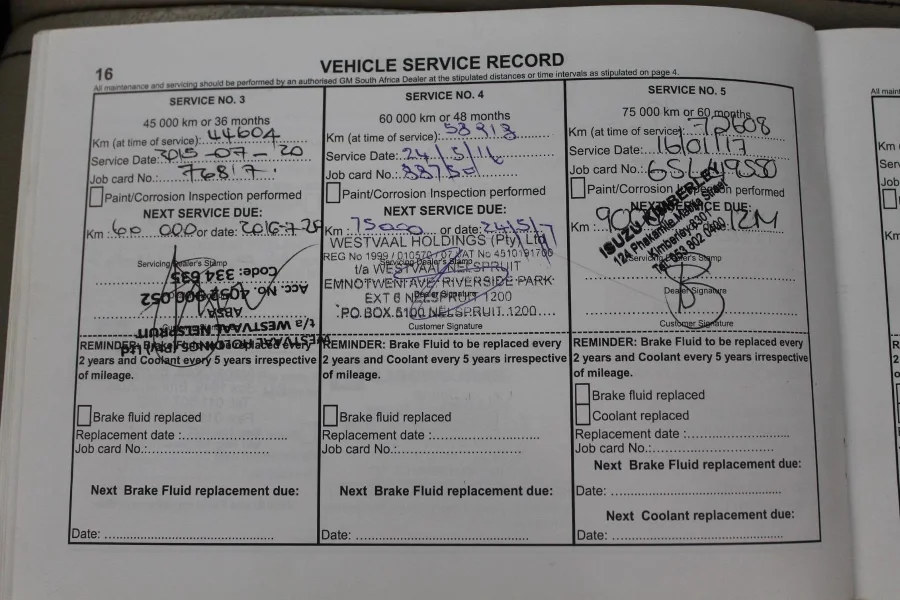 16
VEHICLE SERVICE RECORD
All maintenance and servicing should be performed by an authorised GM South Africa Dealer at the stipulated distances or time intervals as stipulated on page 4.
SERVICE NO. 3
45 000 km or 36 months
Km (at time of service): 44604
Service Date: 2015-07-20
Job card No.: 76817
Paint/Corrosion Inspection performed
NEXT SERVICE DUE:
Km : 60 000 or date: 2016-7-20
Servicing Dealer's Stamp
Code: 334 635
Acc. No. 4052 900 052
ABSA
t/a WESTVAAL NELSPRUIT
WESTVAAL HOLDINGS (Pty) Ltd
REMINDER: Brake Fluid to be replaced every
2 years and Coolant every 5 years irrespective
of mileage.
Brake fluid replaced
Replacement date :
Job card No.:
Next Brake Fluid replacement due:
Date:
SERVICE NO. 4
60 000 km or 48 months
Km (at time of service): 58213
Service Date: 24/5/16
Job card No.:
Paint/Corrosion Inspection performed
NEXT SERVICE DUE:
Km : 75000 or date: 24/5/17
WESTVAAL HOLDINGS (Pty) Ltd
REG No 1999 / 010570 / 07 VAT No 4510191706
Servicing Dealer's Stamp
t/a WESTVAAL NELSPRUIT
EMNOTWENI AVE RIVERSIDE PARK
Dealer Signature
EXT 6 NELSPRUIT 1200
PO BOX 5100 NELSPRUIT 1200
Customer Signature
REMINDER: Brake Fluid to be replaced every
2 years and Coolant every 5 years irrespective
of mileage.
Brake fluid replaced
Replacement date :
Job card No.:
Next Brake Fluid replacement due:
Date:
SERVICE NO. 5
75 000 km or 60 months
Km (at time of service): 70608
Service Date: 16/01/17
Job card No.:
Paint/Corrosion Inspection performed
NEXT SERVICE DUE:
Km : 12M
ISUZU KIMBERLEY
124 Phakamile Mabija Street
Kimberley 8301
Tel: 053 802 0400
Servicing Dealer's Stamp
Dealer Signature
Customer Signature
REMINDER: Brake Fluid to be replaced every
2 years and Coolant every 5 years irrespective
of mileage.
Brake fluid replaced
Coolant replaced
Replacement date :
Job card No.:
Next Brake Fluid replacement due:
Date:
Next Coolant replacement due:
Date: